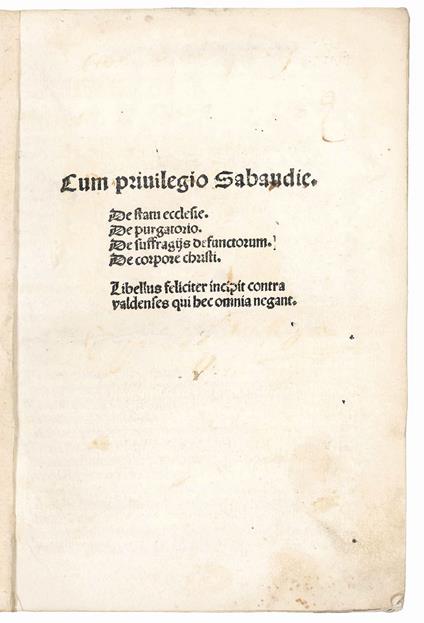 Cum priuilegio Sabaudie.
De statu ecclesie.
De purgatorio.
De suffragijs defunctorum.
De corpore christi.
Libellus feliciter incipit contra
valdenses qui hec omnia negant.